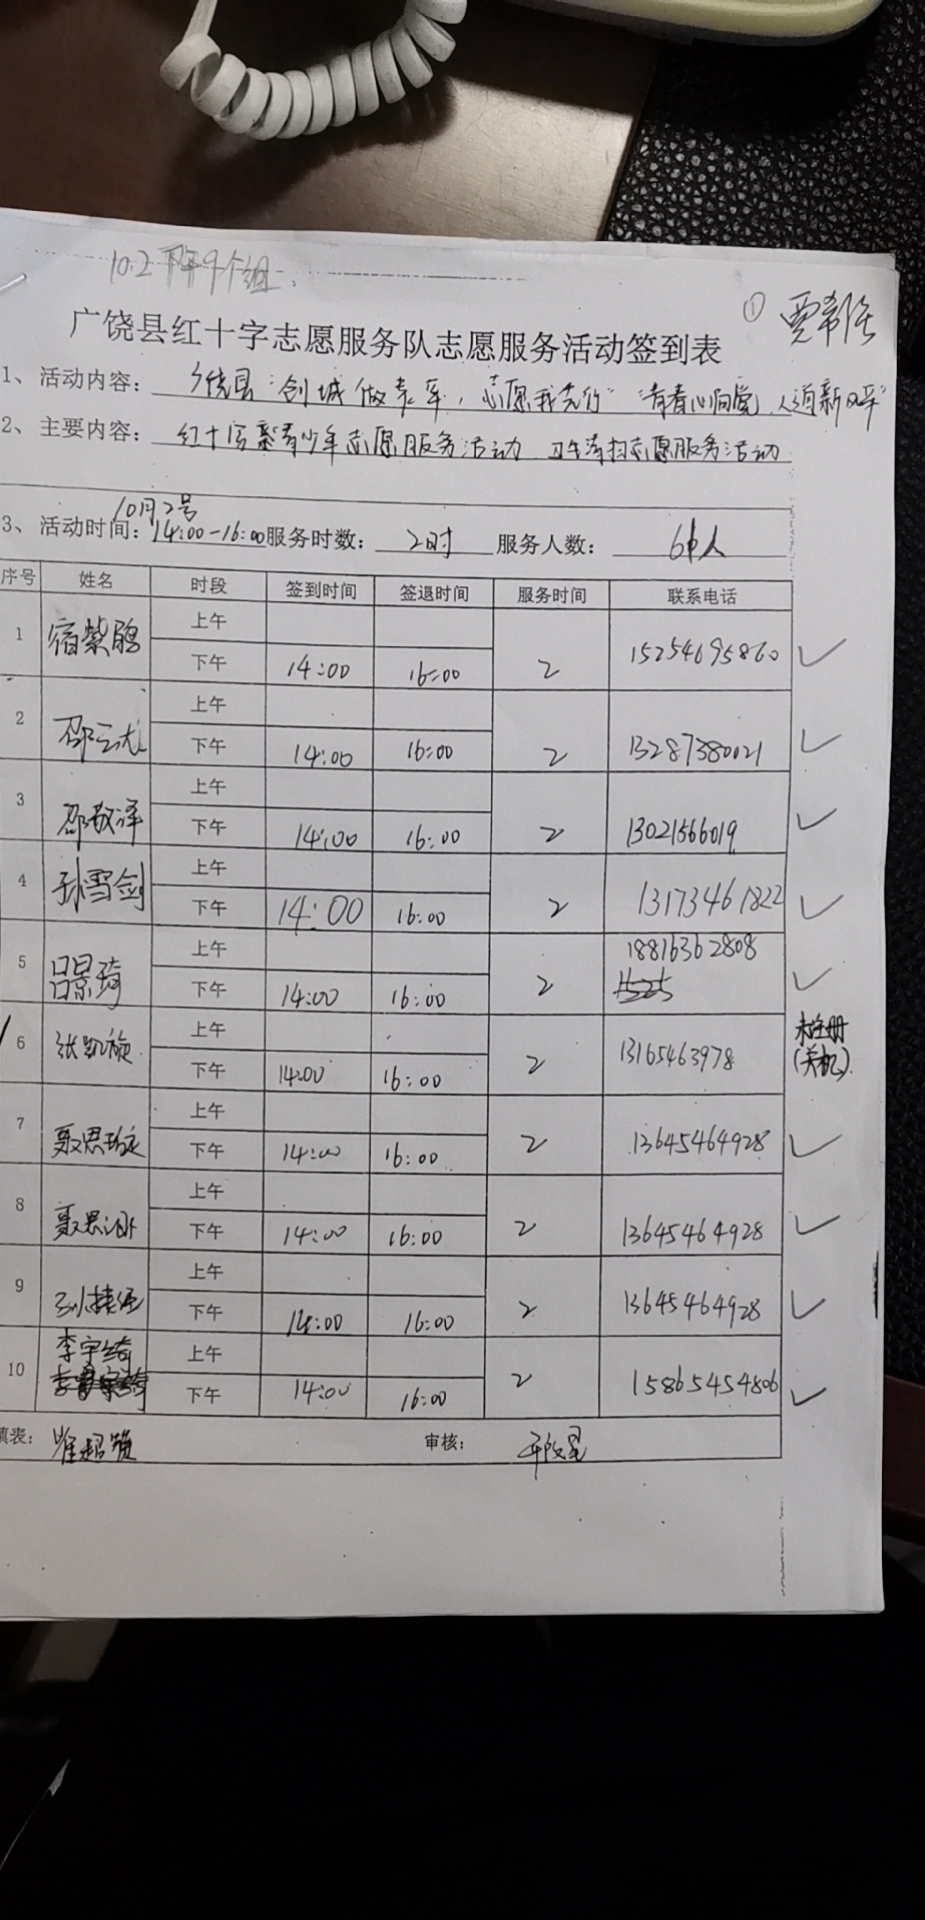 10.2 下午9个组.
① 贾
广饶县红十字志愿服务队志愿服务活动签到表
1、活动内容: 广饶县"创城做表率,志愿我先行""青春心向党 人道新风采"
2、主要内容: 红十字系青少年志愿服务活动 卫生清扫志愿服务活动
10月2号
3、活动时间: 14:00-16:00 服务时数: 2时 服务人数: 人
序号 姓名 时段 签到时间 签退时间 服务时间 联系电话
1 宿紫鹃 上午
下午 14:00 16:00 2 15254695860 ✓
2 邵云龙 上午
下午 14:00 16:00 2 13287380021 ✓
3 邵敬泽 上午
下午 14:00 16:00 2 13021566019 ✓
4 孙雪剑 上午
下午 14:00 16:00 2 13173461822 ✓
5 吕景琦 上午 18816362808
下午 14:00 16:00 2 ✓
6 张凯旋 上午 未注册
下午 14:00 16:00 2 13165463978 (关机).
7 聂思 上午
下午 14:00 16:00 2 13645464928 ✓
8 聂思 上午
下午 14:00 16:00 2 13645464928 ✓
9 孙 上午
下午 14:00 16:00 2 13645464928 ✓
10 李宇绮 上午
下午 14:00 16:00 2 15865454806 ✓
填表: 崔超 审核: